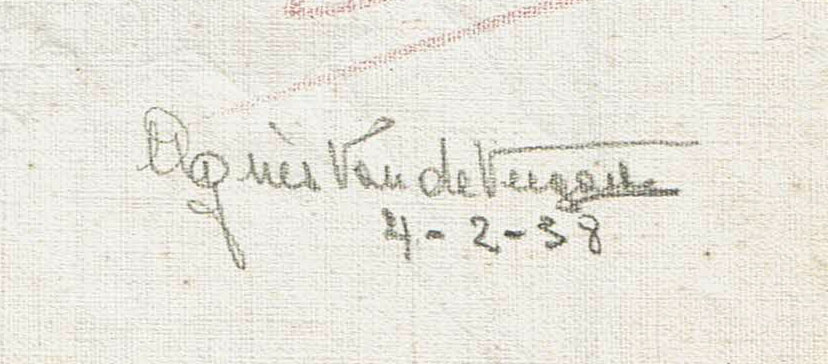 Agnès Van de
4-2-38